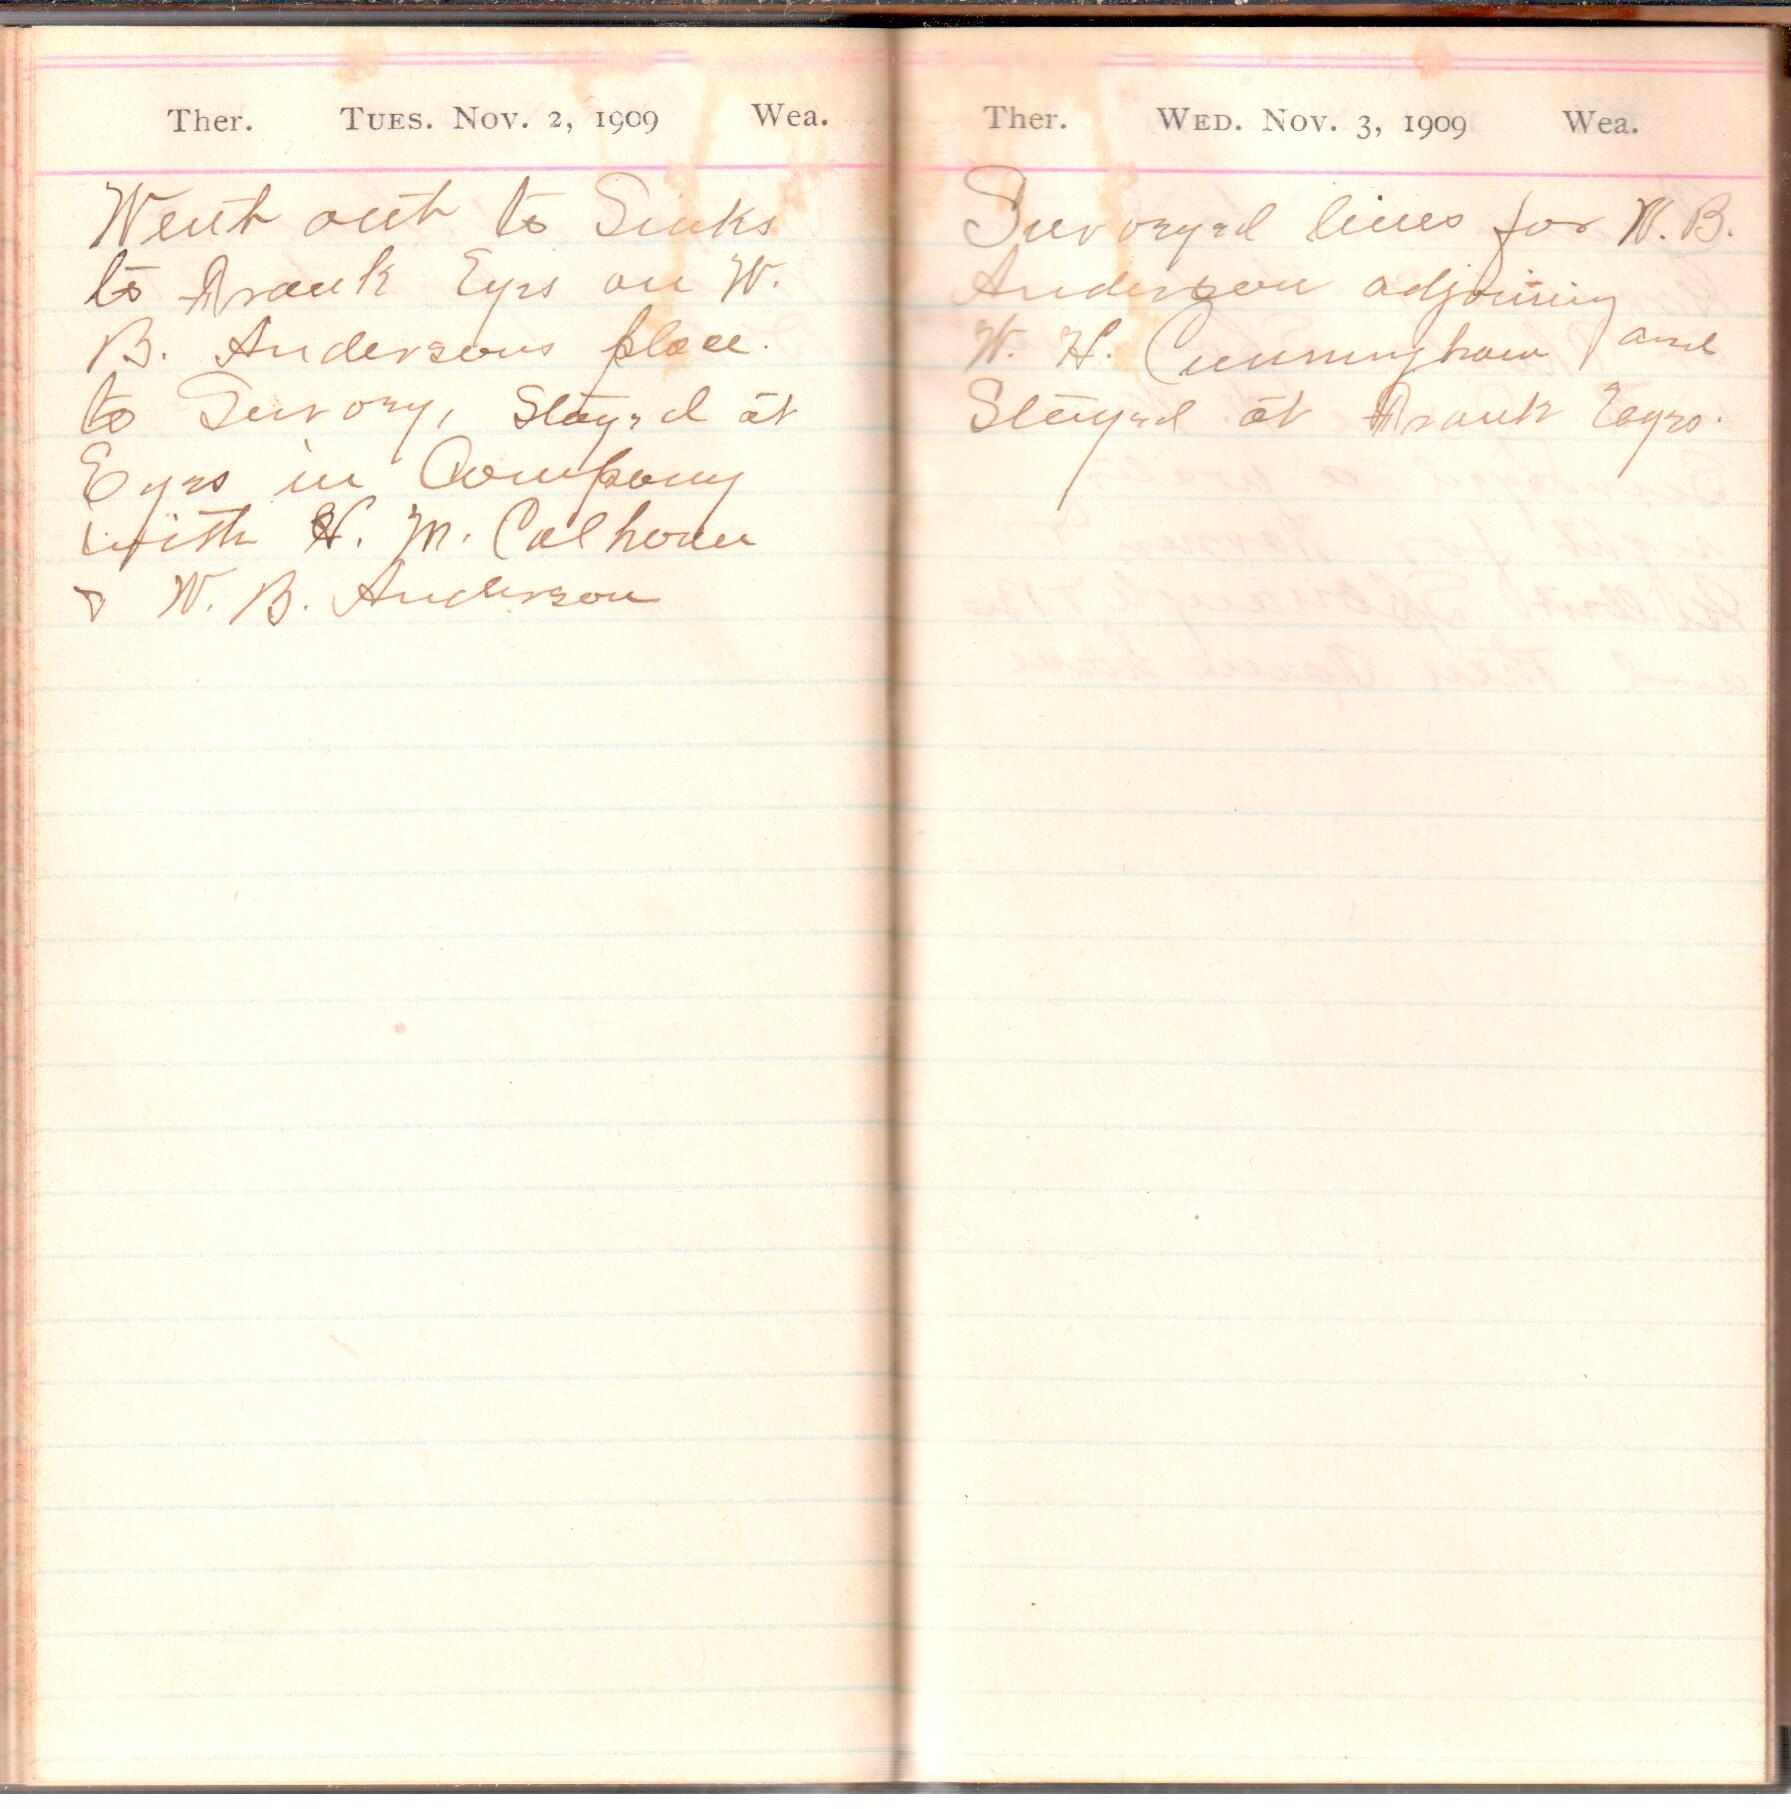 Ther. Tues. Nov. 2, 1909 Wea.
Went out to Sinks
to Frank Eyes on W.
B. Andersons place.
to Survey, Stayed at
Eyes in Company
with H. M. Calhoun
& W. B. Anderson
Ther. Wed. Nov. 3, 1909 Wea.
Surveyed lines for W. B.
Anderson adjoining
W. H. Cunningham and
Stayed at Frank Eyes.